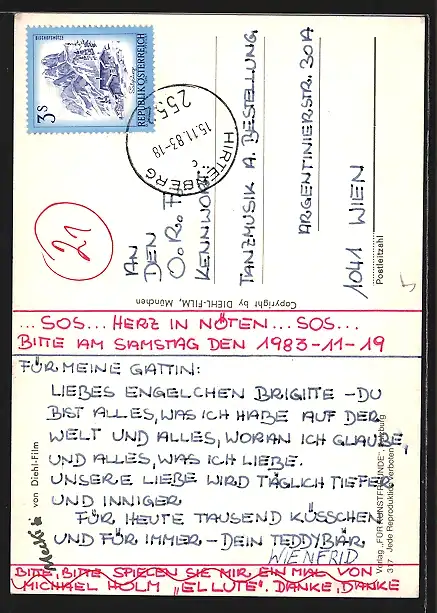 BISCHOFSMÜTZE
Salzburg
REPUBLIK ÖSTERREICH
3 S
HIRTENBERG
15.11.83-18
c
255
21
AN
DEN
O.R.F.
KENNWORT:
TANZMUSIK A. BESTELLUNG,
ARGENTINIERSTR. 30A
1041 WIEN
Postleitzahl
Copyright by DIEHL-FILM, München
...SOS... HERZ IN NÖTEN...SOS...
BITTE AM SAMSTAG DEN 1983-11-19
FÜR MEINE GATTIN:
LIEBES ENGELCHEN BRIGITTE – DU
BIST ALLES, WAS ICH HABE AUF DER
WELT UND ALLES, WORAN ICH GLAUBE,
UND ALLES, WAS ICH LIEBE.
UNSERE LIEBE WIRD TÄGLICH TIEFER
UND INNIGER
FÜR HEUTE TAUSEND KÜSSCHEN
UND FÜR IMMER – DEIN TEDDYBÄR,
WIENFRID
BITTE, BITTE SPIELEN SIE MIR EIN MAL VON
MICHAEL HOLM "EL LUTE". DANKE, DANKE
Mecki
von Diehl-Film
Verlag „FÜR KUNSTFREUNDE",
317 Jede Reproduktion verboten